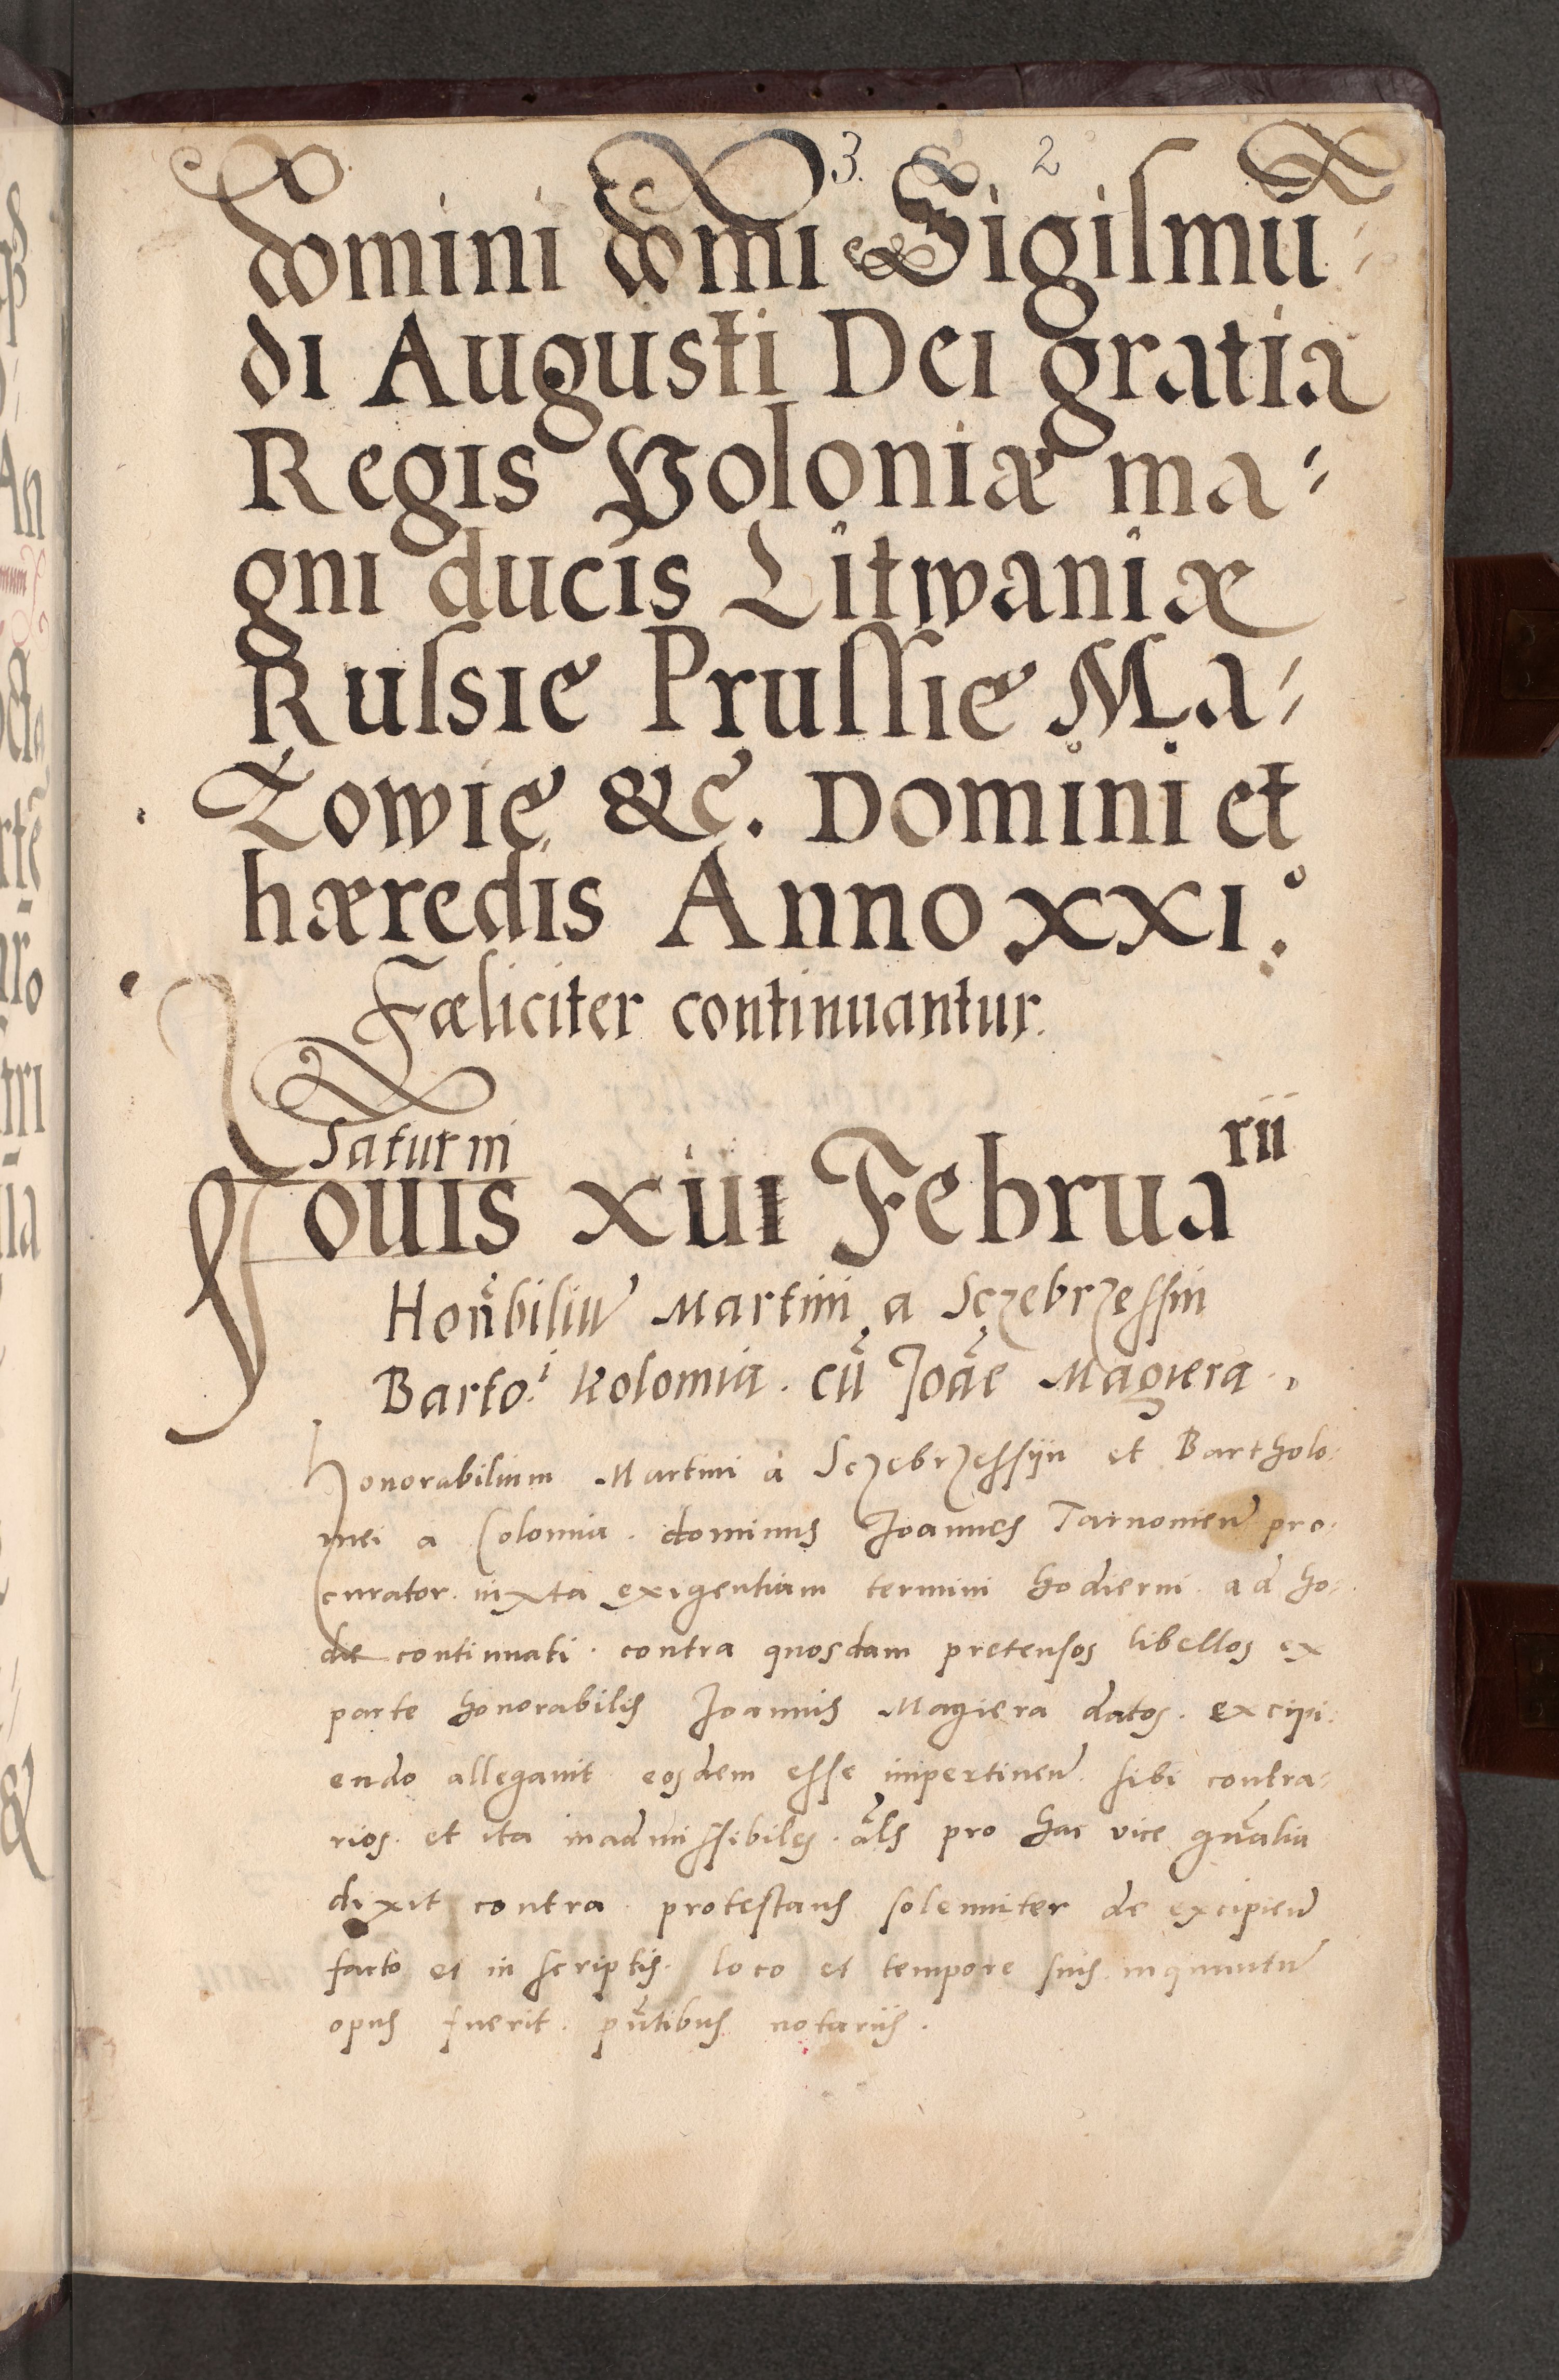 3. 2
domini dñni Sigiſmū-
di Augusti Dei gratia
Regis Poloniæ ma-
gni ducis Litwaniæ
Ruſsię Pruſſię Ma-
Zowię &c. Domini et
hæredis Anno XXI.°
Fæliciter continuantur.
Saturni
Jouis xiii Februarii
Honr̃biliu Martini a Sczebrzeſſin
Barto.i Kolomia. cū Joãe Magiera.
Honorabilium Martini à Sczebrzeſsyn et Bartholo-
mei a Colomia. dominus Joannes Tarnouien pro-
curator. iuxta exigentiam termini hodierni ad ho-
die continuati. contra quosdam pretenſos libellos ex
parte honorabilis Joannis Magiera datos. excipi-
endo allegauit eosdem eſſe impertinen ſibi contra-
rios. et ita inadmiſſibiles. ãls pro hac vice gñalia
dixit contra. proteſtans ſolenniter de excipien
facto et in ſcriptis. loco et tempore ſuis inquantu
opus fuerit. pñtibus notariis.
An